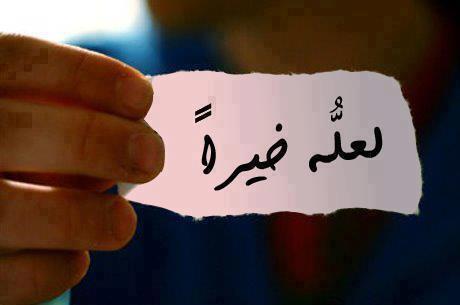 لعلُّه خيراً